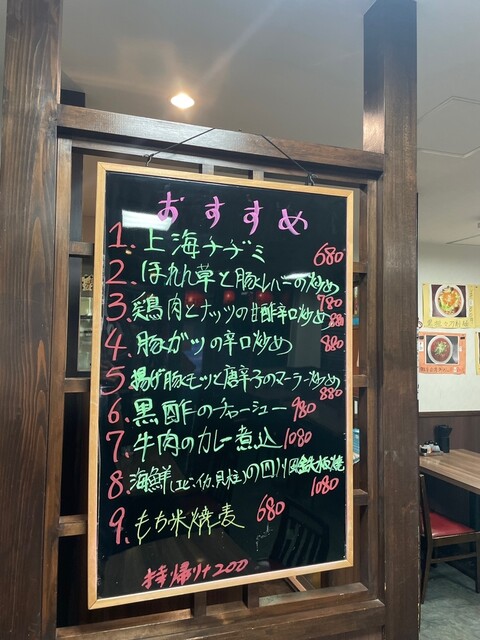 おすすめ
1. 上海チヂミ 680
2. ほれん草と豚レバーの炒め 780
3. 鶏肉とナッツの甘酢辛口炒め 880
4. 豚ガツの辛口炒め 880
5. 揚げ豚モツと唐辛子のマーラー炒め 880
6. 黒酢のチャーシュー 980
7. 牛肉のカレー煮込 1080
8. 海鮮(エビ、イカ、貝柱)の四川風鉄板焼 1080
9. もち米焼麦 680
持帰り+200